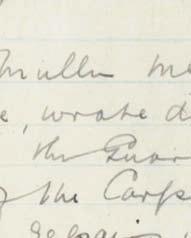 Muller me
e, wrote d
the Guar
of the Corps